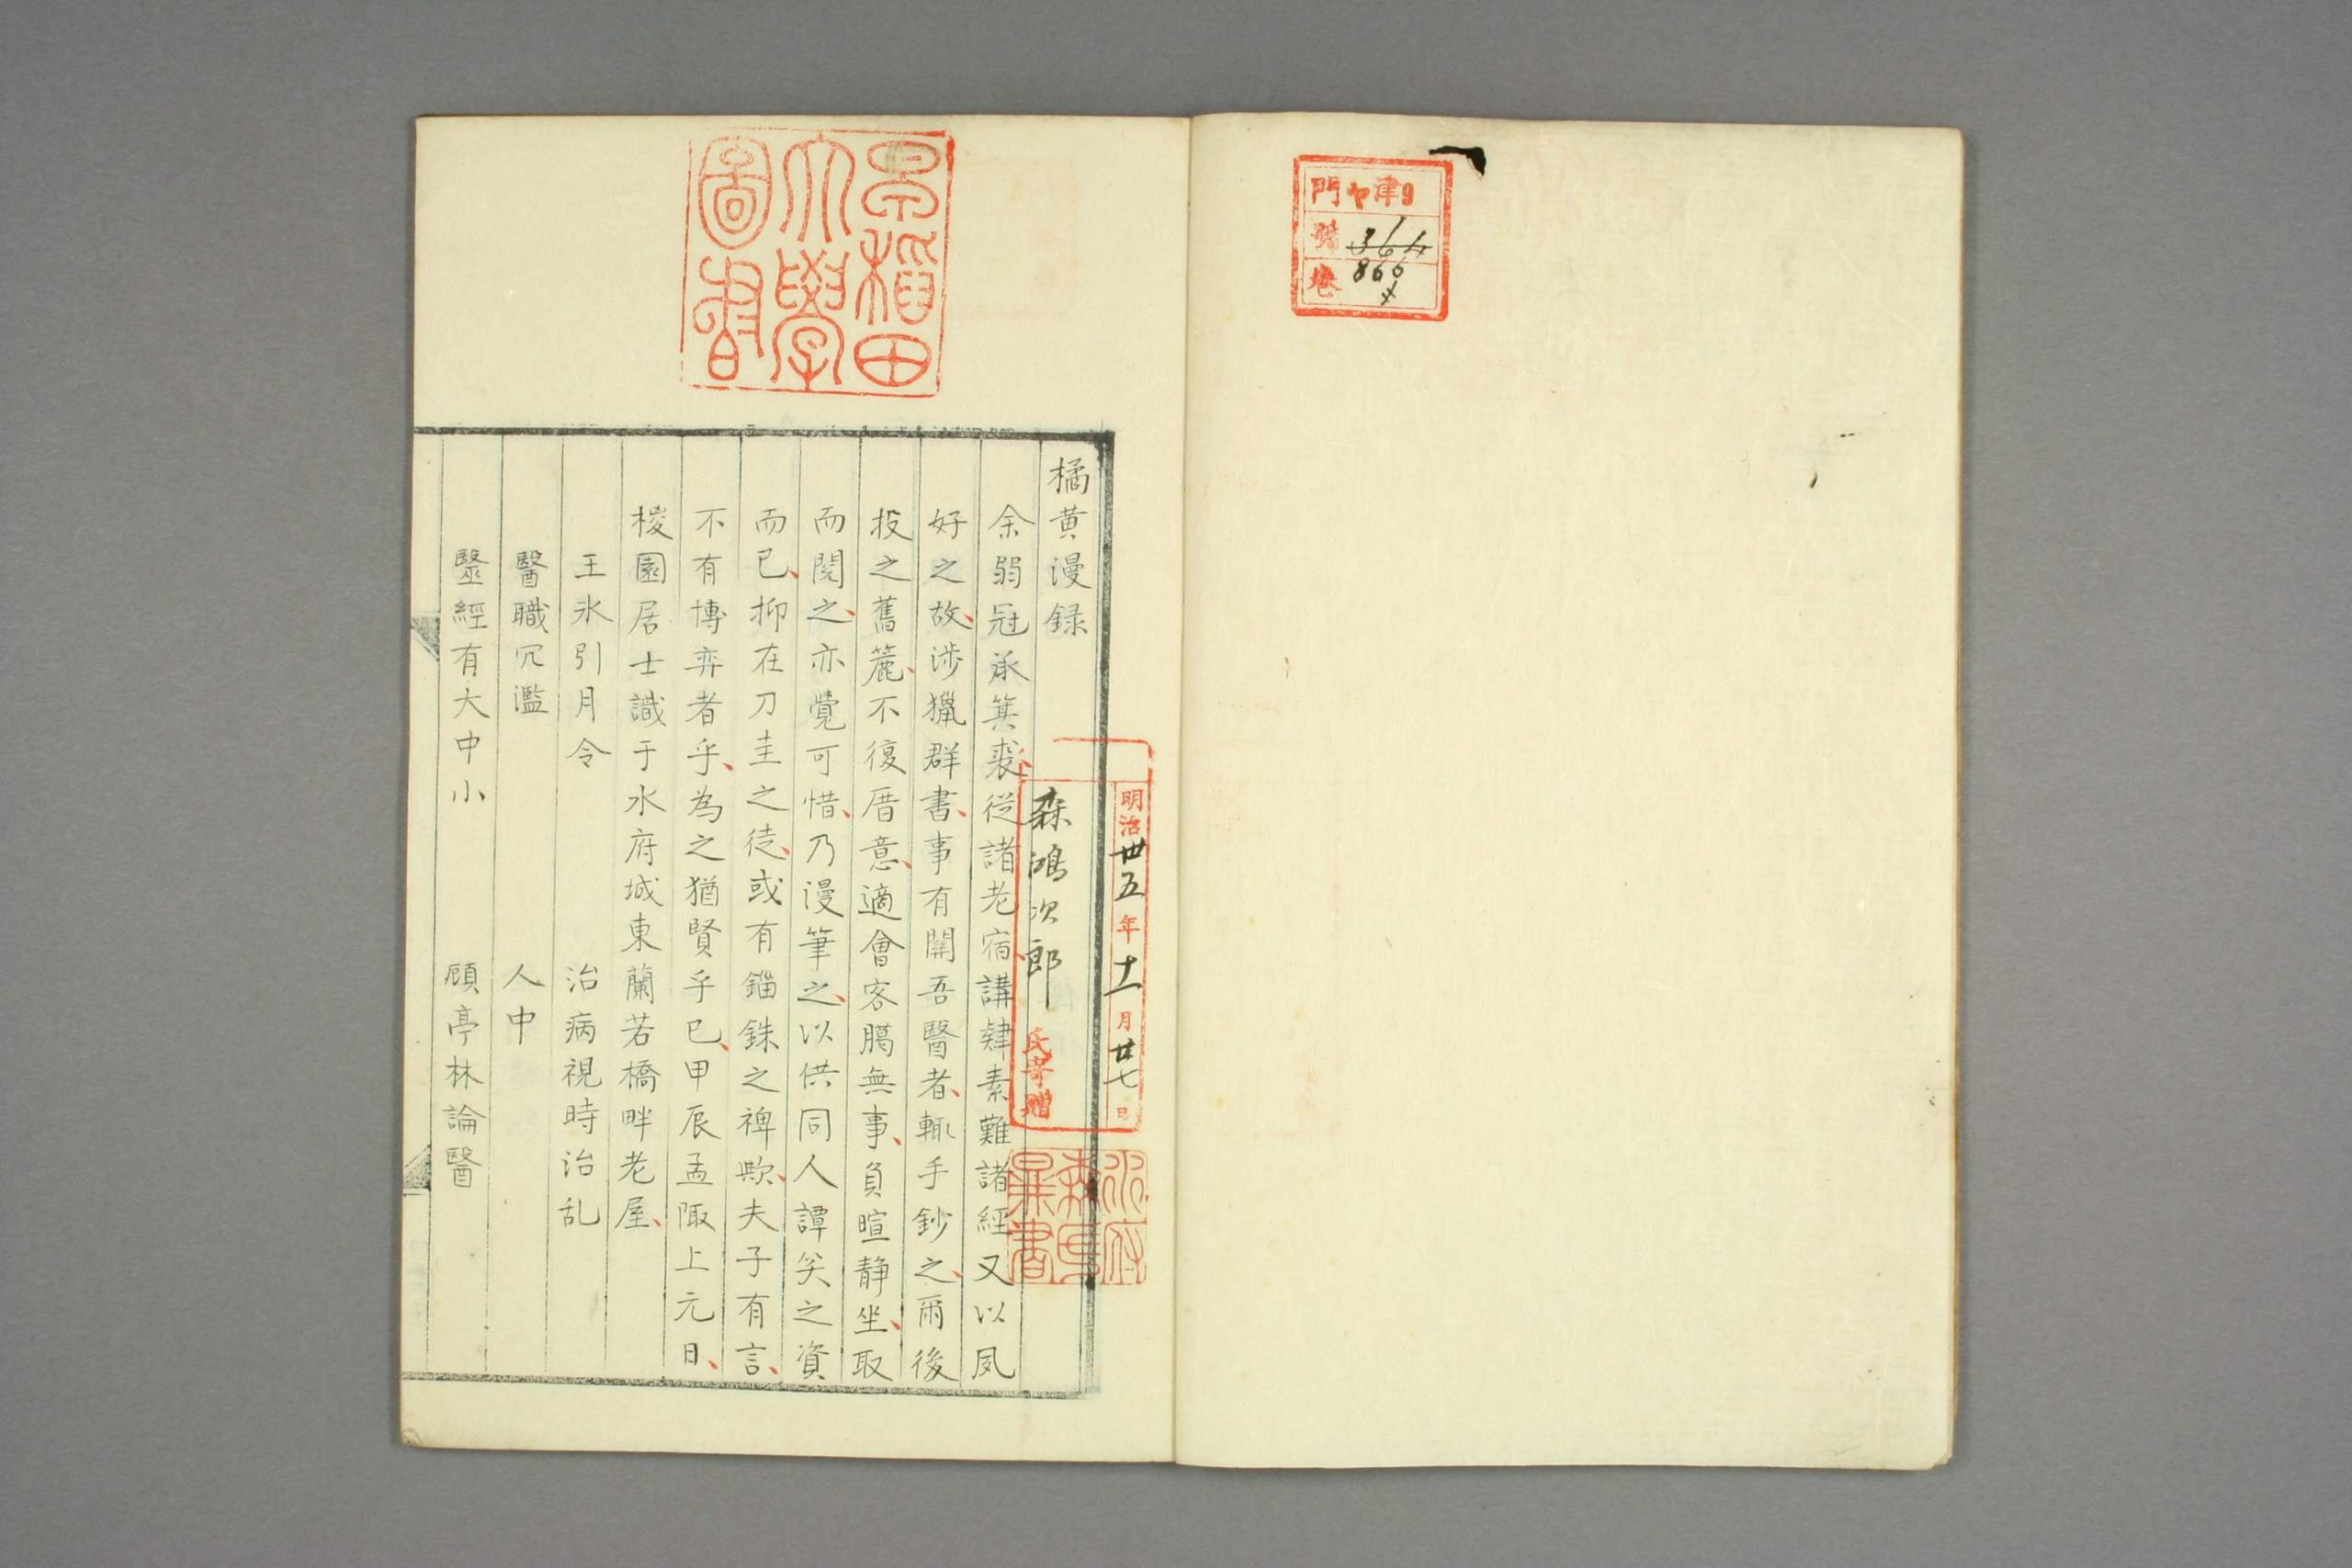 門ヤ津9
號 364
卷 866
早稲田
大學
圖書
橘黄漫録
余弱冠承箕裘從諸老宿講肄素難諸經又以夙
好之故涉獵群書事有關吾醫者輒手鈔之爾後
投之舊簏不復厝意適會客臈無事負暄静坐取
而閲之亦覺可惜乃漫筆之以供同人譚笑之資
而已抑在刀圭之徒或有錙銖之裨歟夫子有言
不有博弈者乎為之猶賢乎已甲辰孟陬上元日
棭園居士識于水府城東蘭若橋畔老屋
王氷引月令 治病視時治乱
醫職冗濫 人中
毉經有大中小 顧亭林論醫
明治卅五年十一月廿七日
森鴻次郎氏寄贈
水府
森氏